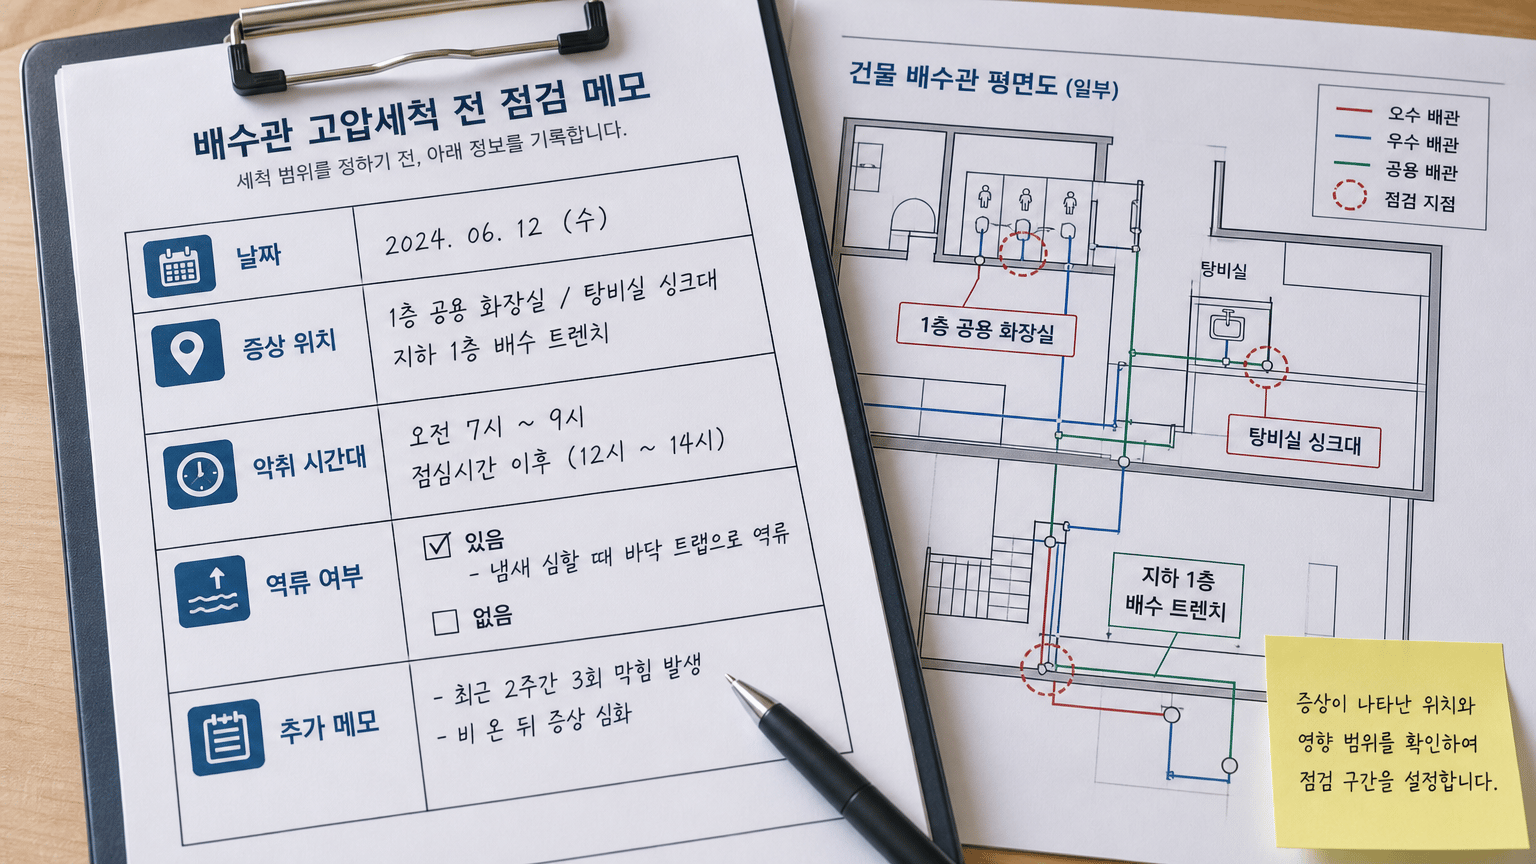 배수관 고압세척 전 점검 메모
세척 범위를 정하기 전, 아래 정보를 기록합니다.
날짜
2024. 06. 12 (수)
증상 위치
1층 공용 화장실 / 탕비실 싱크대
지하 1층 배수 트렌치
악취 시간대
오전 7시 ~ 9시
점심시간 이후 (12시 ~ 14시)
역류 여부
있음
- 냄새 심할 때 바닥 트랩으로 역류
없음
추가 메모
- 최근 2주간 3회 막힘 발생
- 비 온 뒤 증상 심화
건물 배수관 평면도 (일부)
오수 배관
우수 배관
공용 배관
점검 지점
탕비실
1층 공용 화장실
탕비실 싱크대
지하 1층
배수 트렌치
증상이 나타난 위치와
영향 범위를 확인하여
점검 구간을 설정합니다.